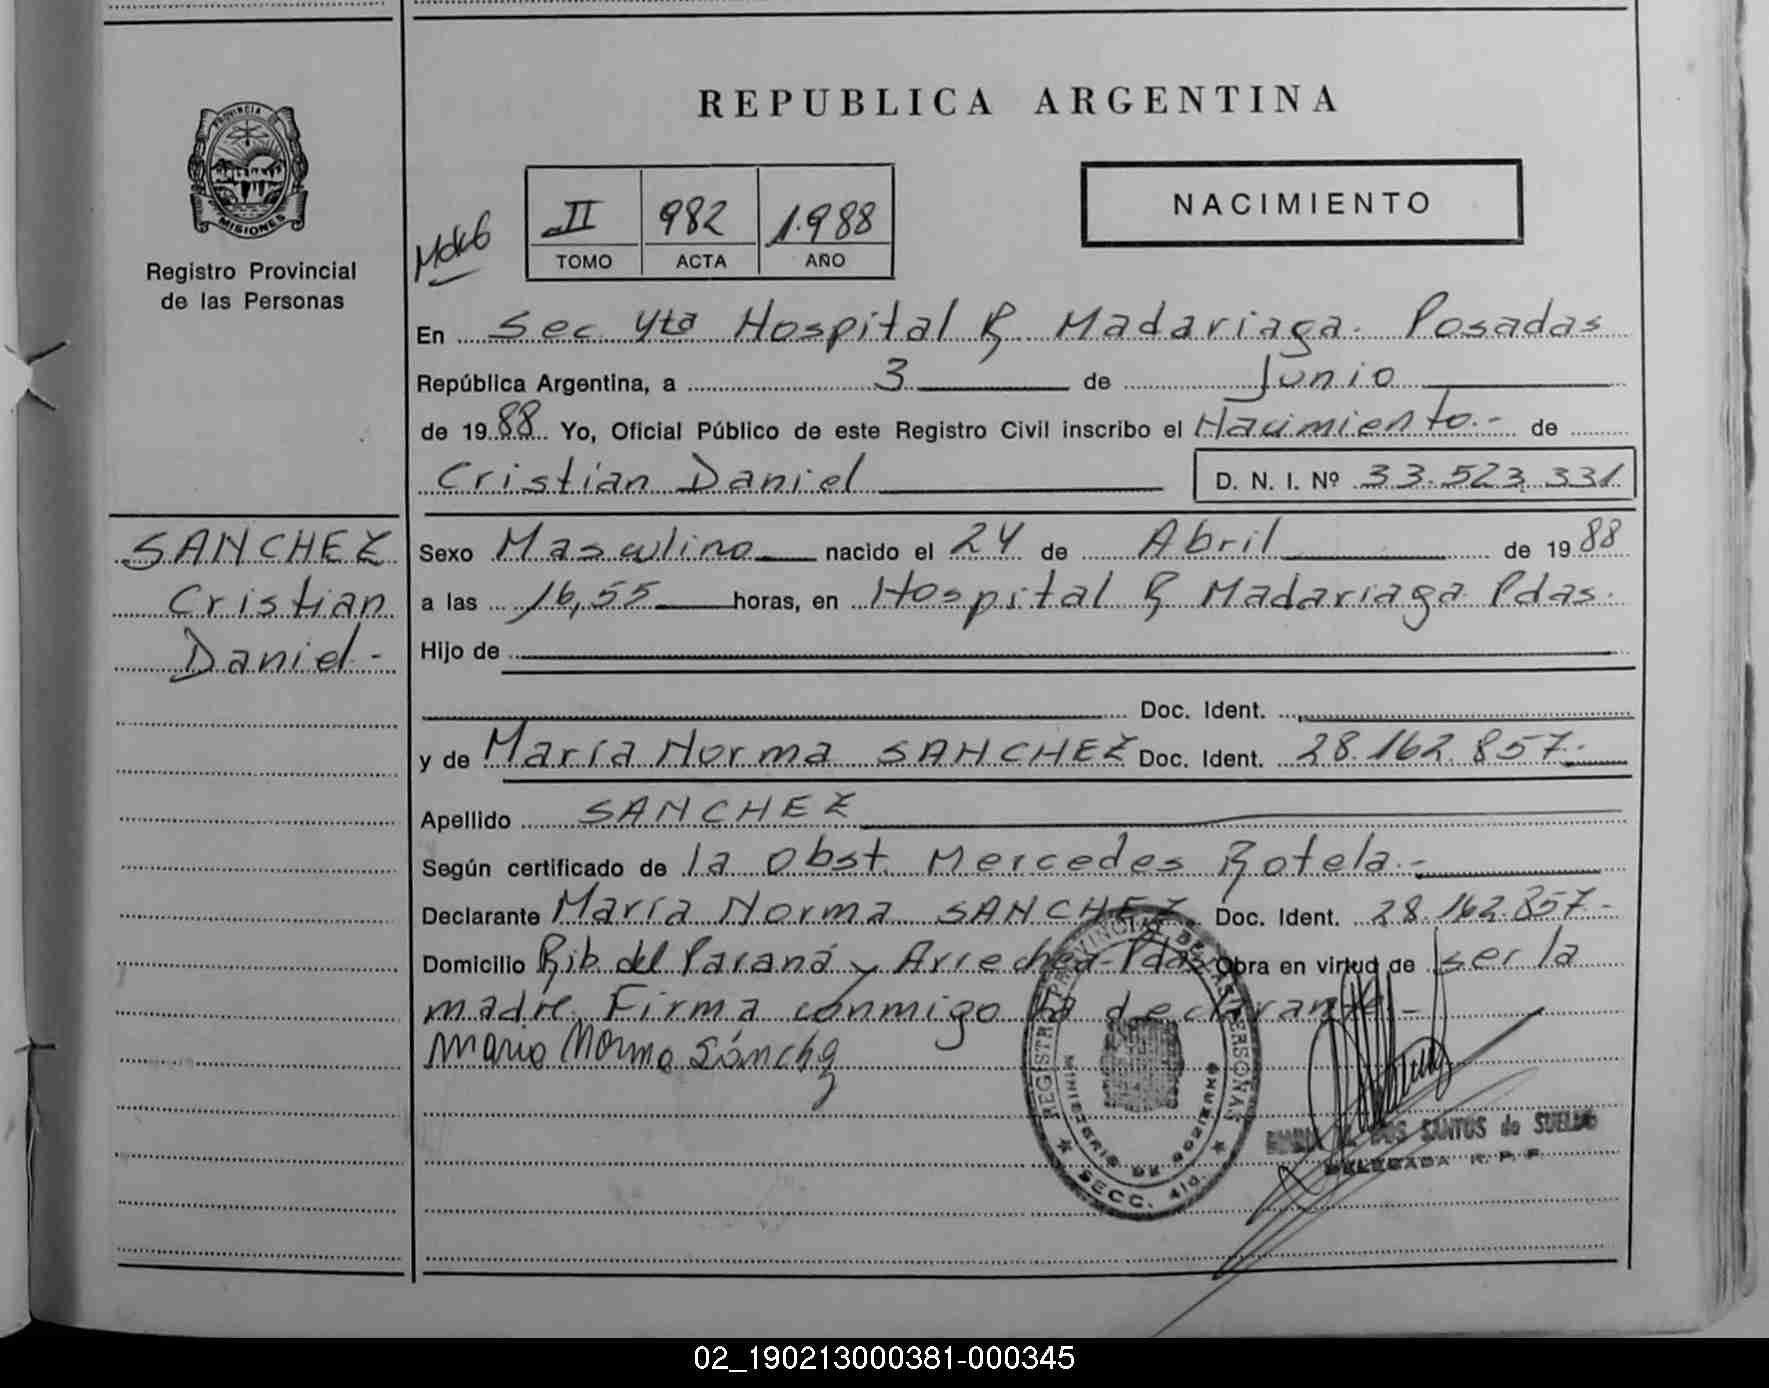 REPUBLICA ARGENTINA
PROVINCIA DE
MISIONES
Registro Provincial
de las Personas
II 982 1.988
TOMO ACTA AÑO
NACIMIENTO
En Sec 4ta Hospital R. Madariaga. Posadas
República Argentina, a 3 de Junio
de 1988 Yo, Oficial Público de este Registro Civil inscribo el Nacimiento.- de
Cristian Daniel D. N. I. Nº 33.523.331
SANCHEZ
Cristian
Daniel-
Sexo Masculino nacido el 24 de Abril de 1988
a las 16,55 horas, en Hospital R Madariaga Pdas.
Hijo de
Doc. Ident.
y de María Norma SANCHEZ Doc. Ident. 28.162.857.-
Apellido SANCHEZ
Según certificado de la Obst. Mercedes Rotela.-
Declarante María Norma SANCHEZ Doc. Ident. 28.162.857.-
Domicilio Rib. del Paraná y Arrechea-Pdas Obra en virtud de ser la
madre. Firma conmigo la declarante.-
Maria Norma Sánchez
REGISTRO PROVINCIAL DE LAS PERSONAS
MINISTERIO DE GOBIERNO
SECC. 4ta.
DOS SANTOS de SUELDO
DELEGADA R. P. P.
02_190213000381-000345